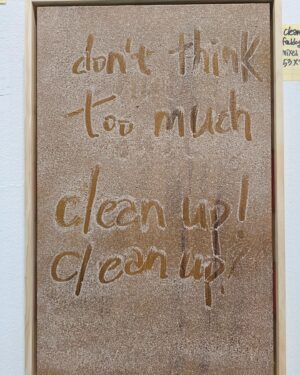 don't think
too much
clean up!
clean up!
clean